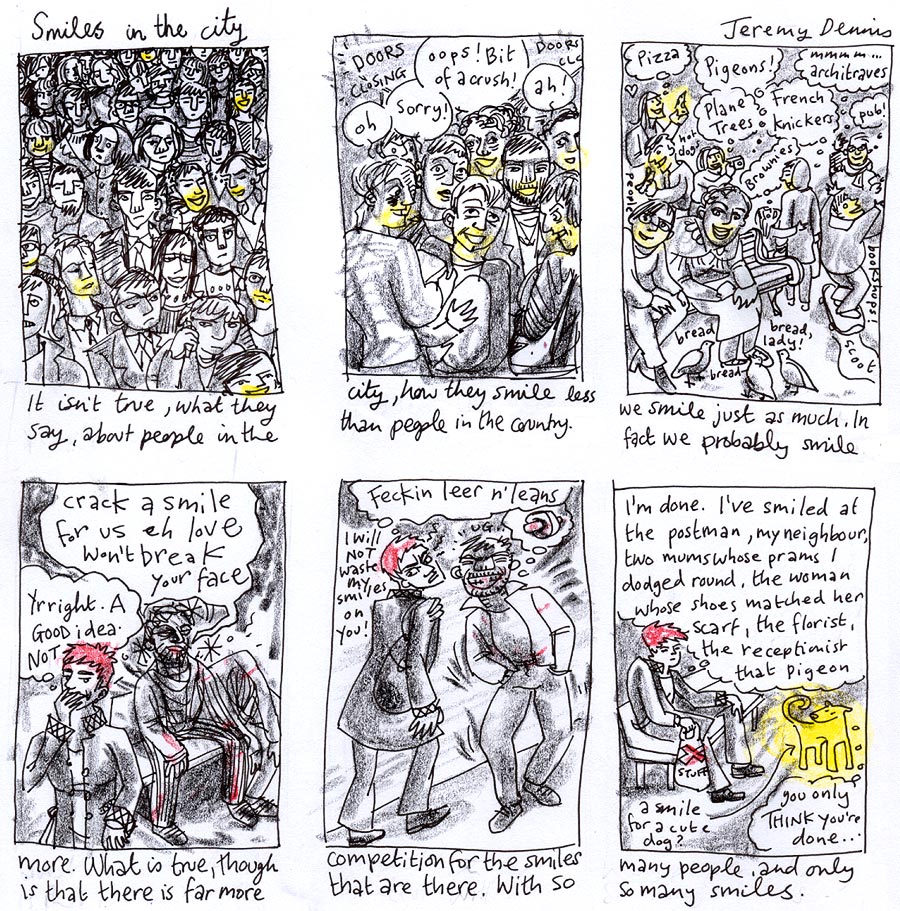 Smiles in the city
Jeremy Dennis
It isn't true, what they
say, about people in the
DOORS
CLOSING
oops! Bit
of a crush!
DOORS
CLO
oh
Sorry!
ah!
city, how they smile less
than people in the country.
Pizza
Pigeons!
mmmm...
architraves
Plane
Trees
French
Knickers
pub!
hot
dog
Brownies
bookshops!
bread
bread,
lady!
bread
scoot
we smile just as much. In
fact we probably smile
crack a smile
for us eh love
won't break
your face
Yrright. A
GOOD idea.
NOT
more. What is true, though
is that there is far more
Feckin leer n' leans
I will
NOT
waste
my
smiles
on
you!
UG
competition for the smiles
that are there. With so
I'm done. I've smiled at
the postman, my neighbour,
two mums whose prams I
dodged round, the woman
whose shoes matched her
scarf, the florist,
the receptionist
that pigeon
STUFF
a smile
for a cute
dog?
you only
THINK you're
done...
many people, and only
so many smiles.